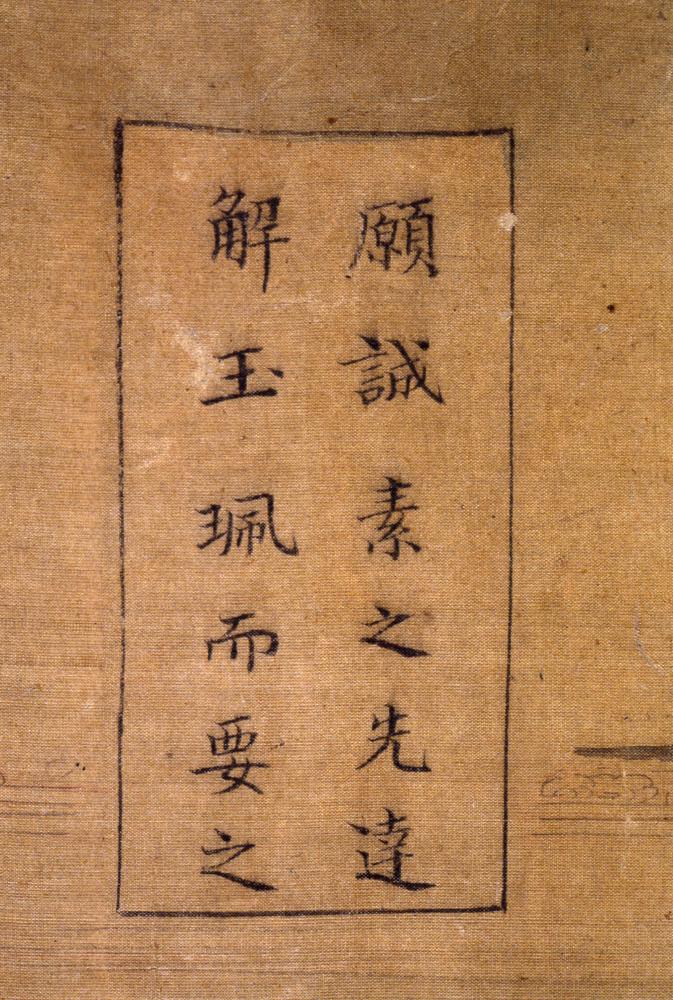 願誠素之先達
解玉珮而要之